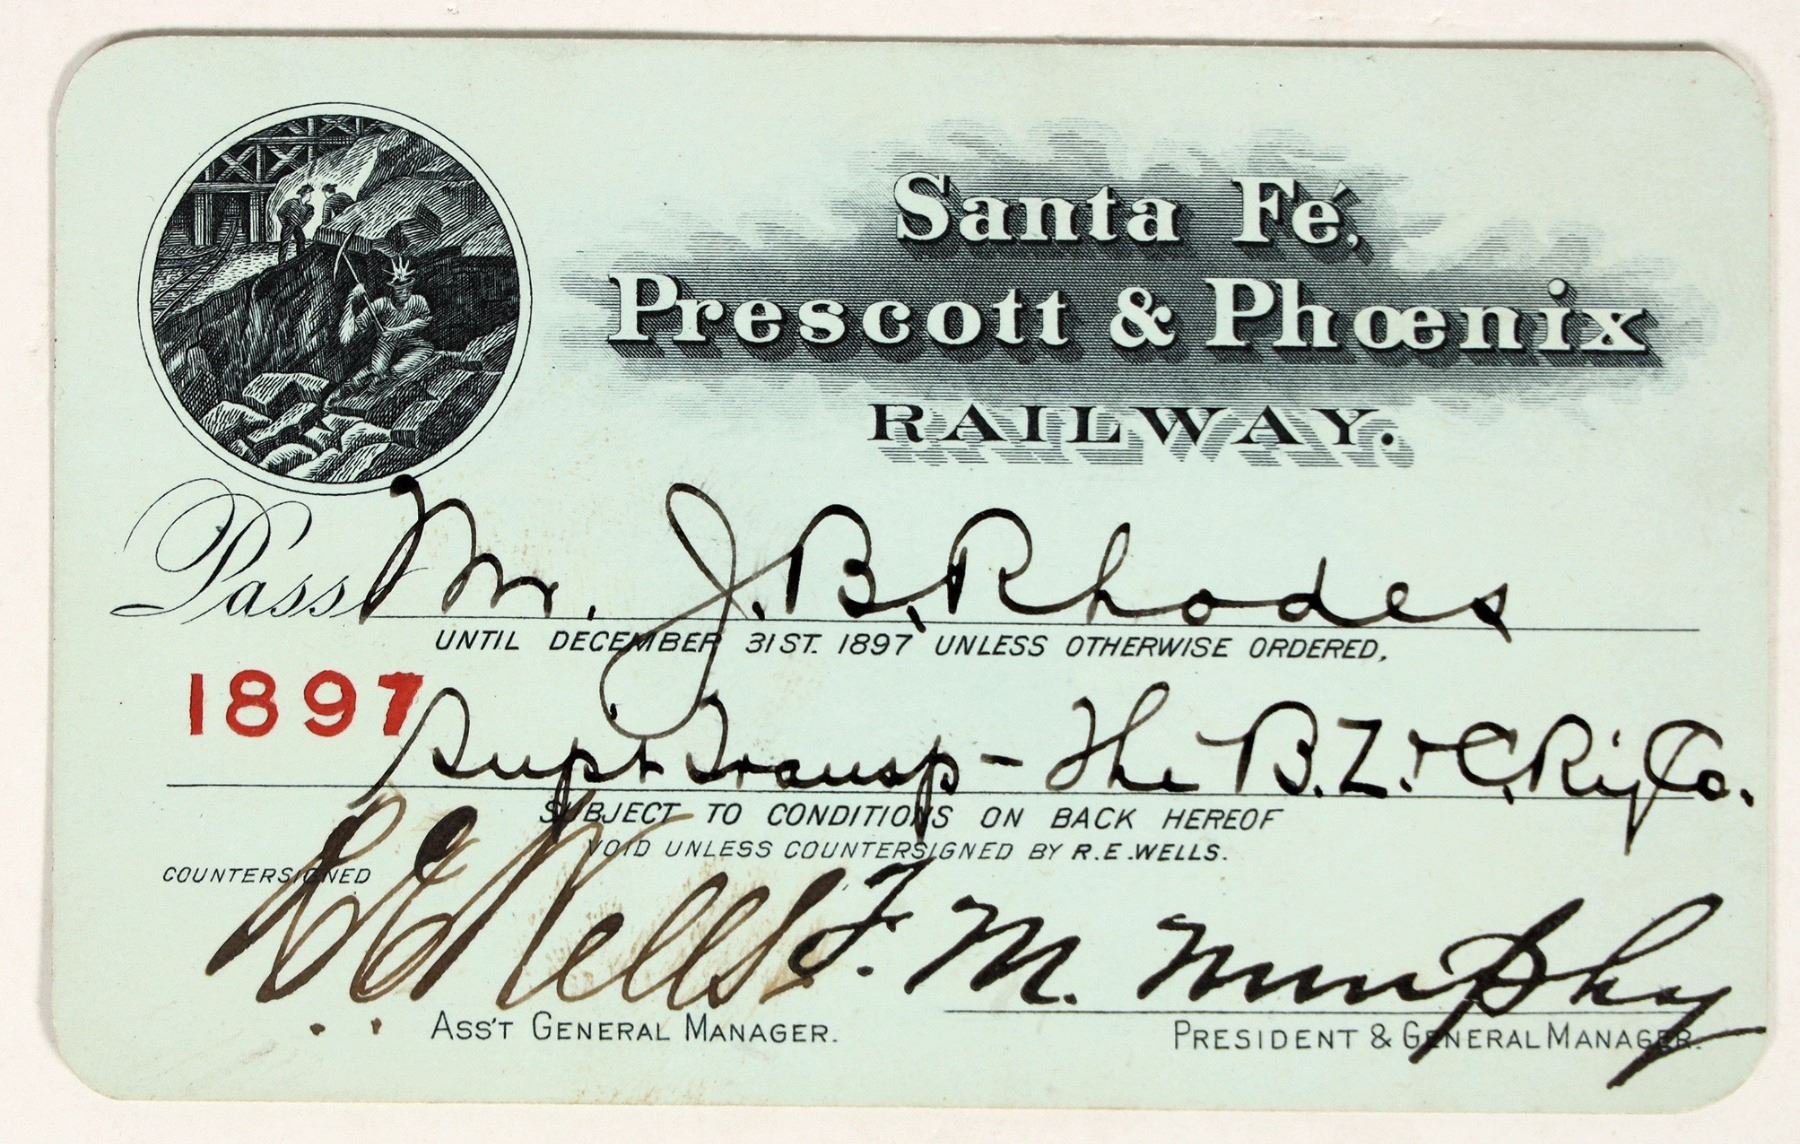 Santa Fé,
Prescott & Phœnix
RAILWAY.
Pass Mr. J. B. Rhodes
UNTIL DECEMBER 31ST. 1897, UNLESS OTHERWISE ORDERED,
1897
Supt Transp - The B. Z. & C. Ry Co.
SUBJECT TO CONDITIONS ON BACK HEREOF
VOID UNLESS COUNTERSIGNED BY R.E.WELLS.
COUNTERSIGNED
R E Wells F. M. Murphy
ASS'T GENERAL MANAGER. PRESIDENT & GENERAL MANAGER.